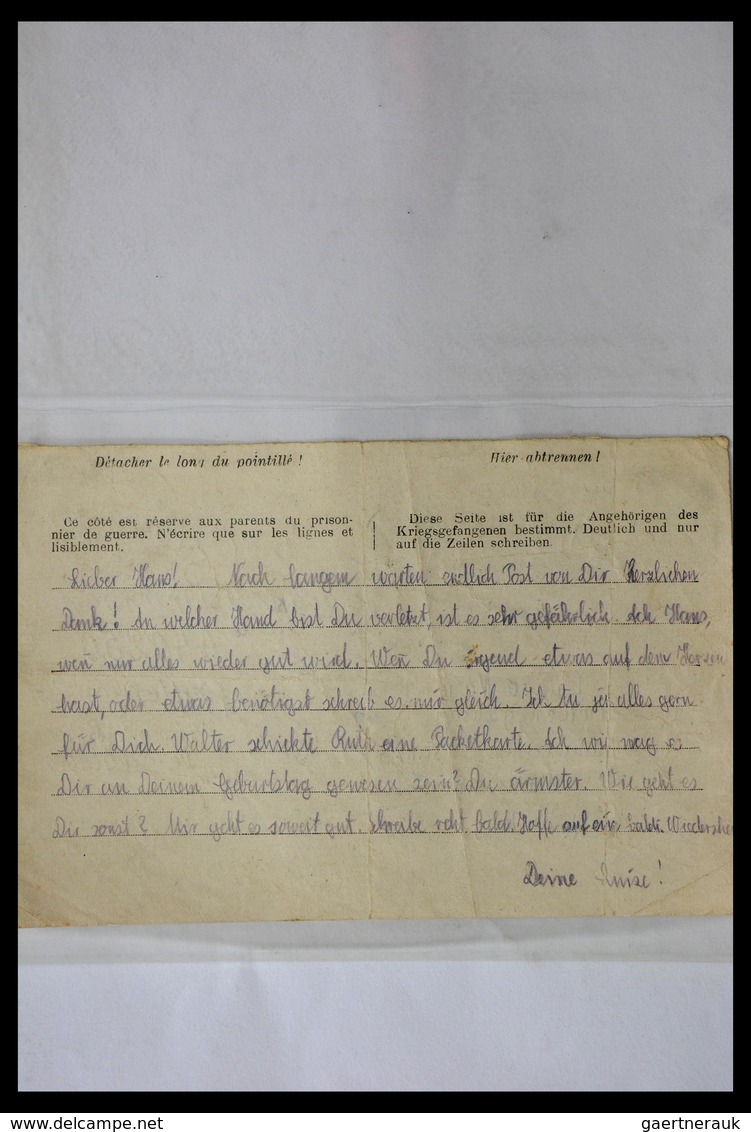 Détacher le long du pointillé !
Hier abtrennen !
Ce côté est réserve aux parents du prison-
nier de guerre. N'écrire que sur les lignes et
lisiblement.
Diese Seite ist für die Angehörigen des
Kriegsgefangenen bestimmt. Deutlich und nur
auf die Zeilen schreiben.
Lieber Hans! Nach langem warten endlich Post von Dir Herzlichen
Dank! An welcher Hand bist Du verletzt, ist es sehr gefährlich. Ach Hans,
wen̄ nur alles wieder gut wird. Wen Du irgend etwas auf dem Herzen
hast, oder etwas benötigst schreib es mir gleich. Ich tu ja alles gern
für Dich. Walter schickte Ruth eine Packetkarte. Ach wie mag es
Dir an Deinem Geburtstag gewesen sein? Du ärmster. Wie geht es
Dir sonst? Mir geht es soweit gut. Schreibe recht bald. Hoffe auf ein bald. Wiedersehe
Deine Luise!
www.delcampe.net
gaertnerauk